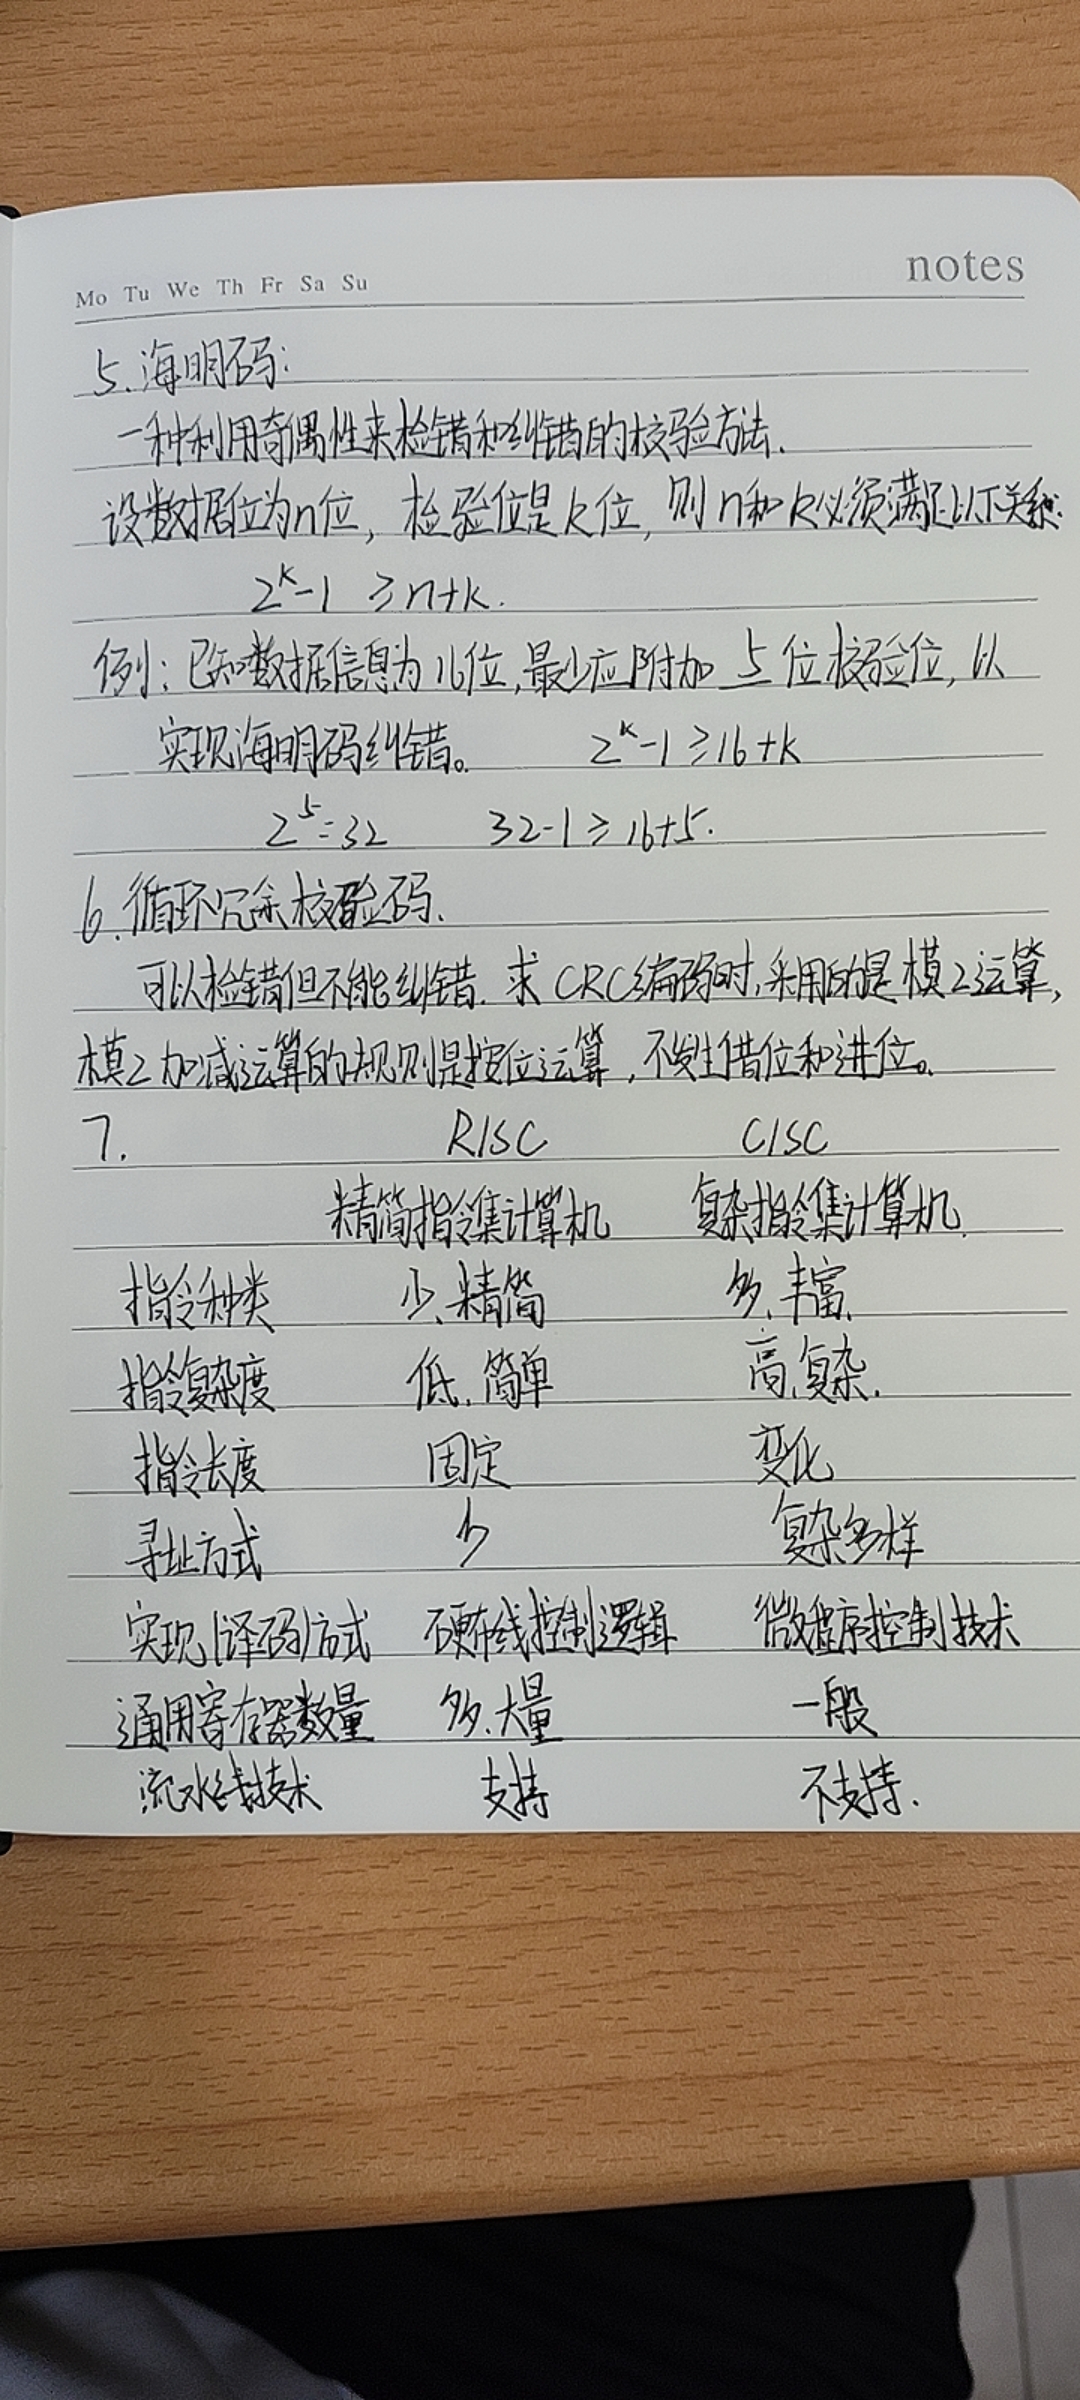 Mo Tu We Th Fr Sa Su
notes
5.海明码:
一种利用奇偶性来检错和纠错的校验方法.
设数据位为n位, 检验位是k位, 则n和k必须满足以下关系:
2^k-1 ≥n+k.
例: 已知数据信息为16位,最少应附加 5 位校验位, 以
实现海明码纠错。 2^k-1≥16+k
2^5=32 32-1≥16+5.
6.循环冗余校验码.
可以检错但不能纠错. 求CRC编码时,采用的是模2运算,
模2加减运算的规则是按位运算,不发生借位和进位。
7. RISC CISC
精简指令集计算机 复杂指令集计算机.
指令种类 少、精简 多、丰富.
指令复杂度 低、简单 高、复杂.
指令长度 固定 变化
寻址方式 少 复杂多样
实现(译码)方式 硬布线控制逻辑 微程序控制技术
通用寄存器数量 多、大量 一般
流水线技术 支持 不支持.